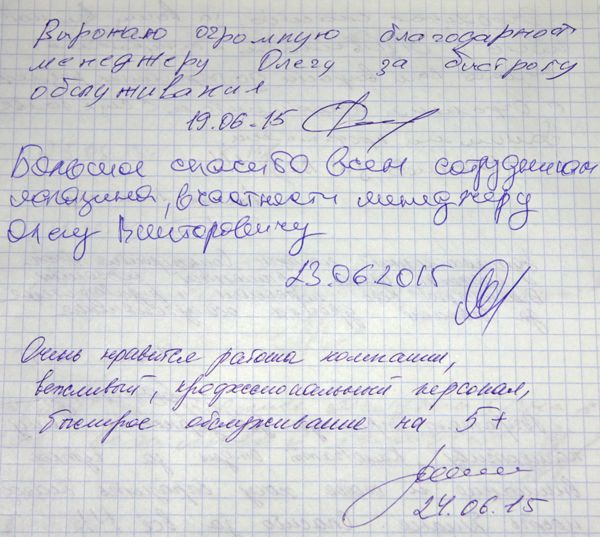 Выражаю огромную благодарность
менеджеру Олегу за быстроту
обслуживания
19.06.15
Большое спасибо всем сотрудникам
магазина, в частности менеджеру
Олегу Викторовичу
23.06.2015
Очень нравится работа компании,
вежливый, профессиональный персонал,
быстрое обслуживание на 5+
24.06.15